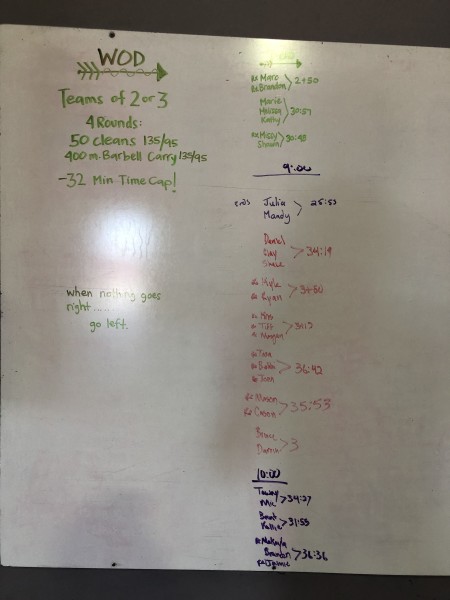 WOD
Teams of 2 or 3
4 Rounds:
50 cleans 135/95
400 m Barbell Carry 135/95
-32 Min Time Cap!
when nothing goes
right.....
go left.
Rx Marc
Rx Brandon > 2+50
Marie
Melissa
Kathy > 30:57
Rx Missy
Shawn >
9:00
Julia
Mandy > 25:53
Daniel
Clay > 34:19
Rx Kyle
Rx Ryan > 3+50
Tiff
Megan
Rx Tara
Rx Bubba > 36:42
Rx Mason
Rx Cason > 35:53
Bruce
Darrin > 3
10:00
Tammy
Mic > 34:27
Brent
Kallie > 31:53
Rx Makayla
Brandan > 36:36
Rx Jamie